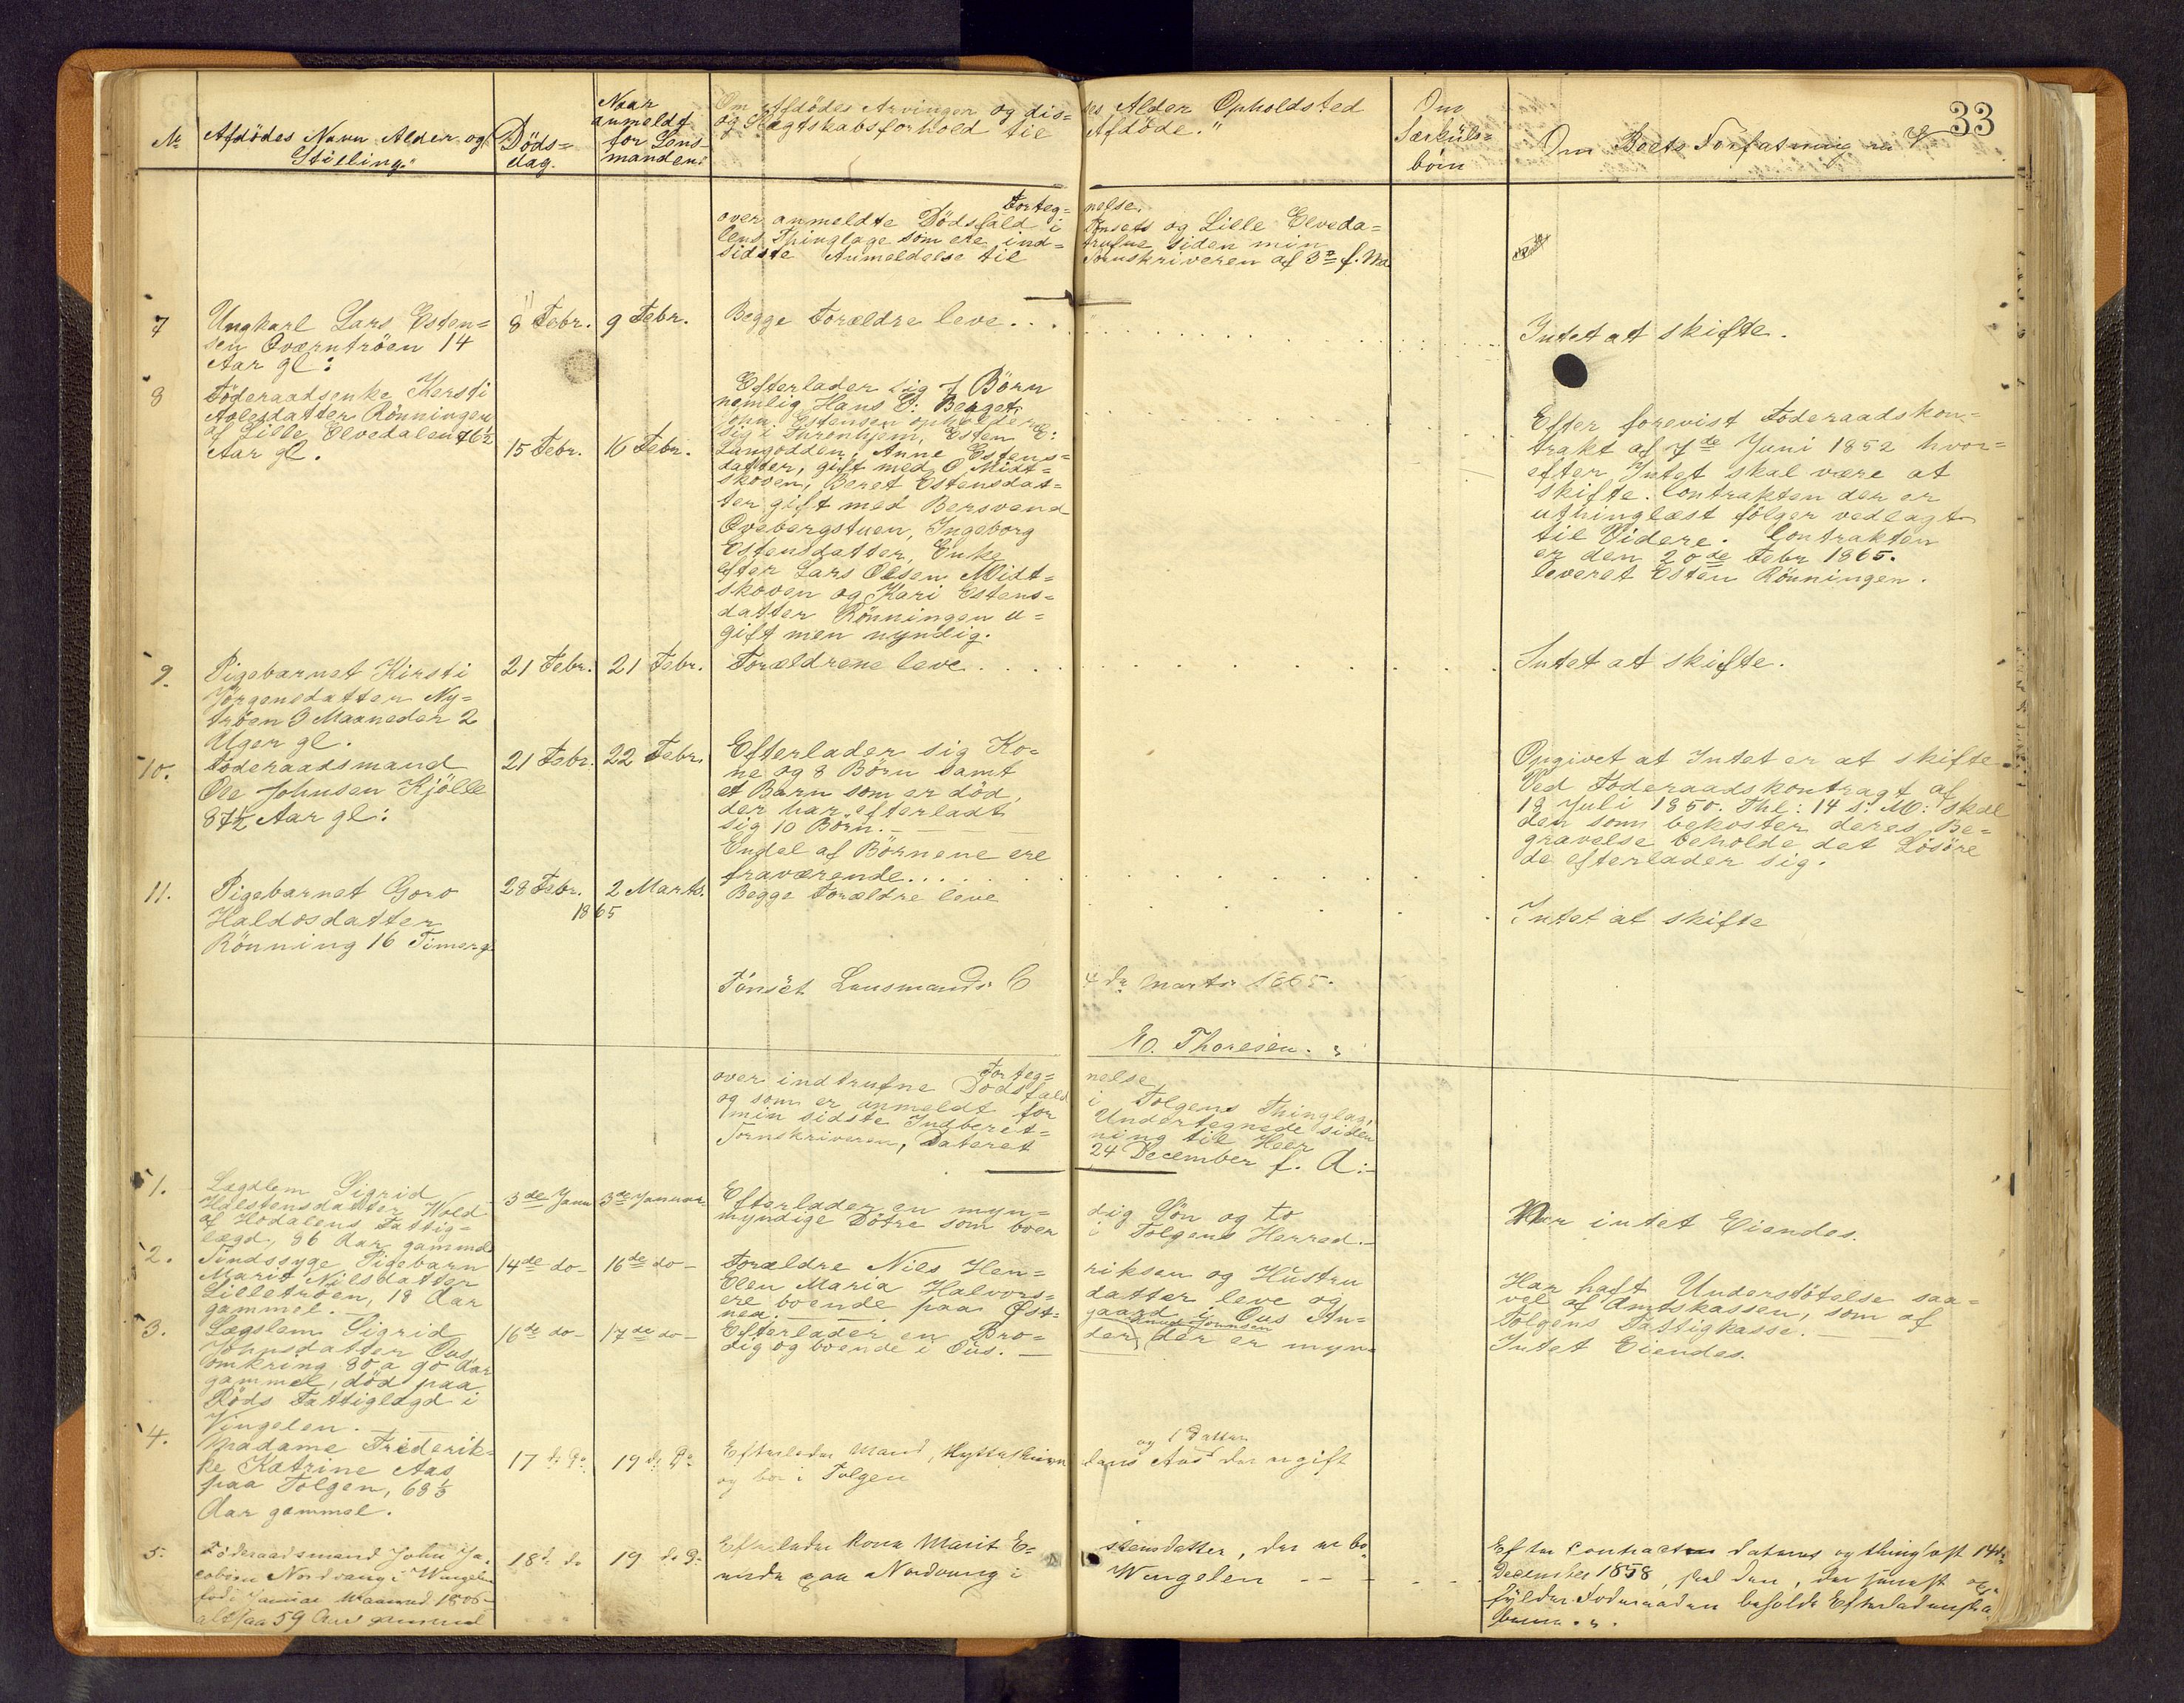 33
No
Afdödes Navn Alder og
Stilling.
Döds=
dag.
Naar
anmeldt
for Lens-
manden
Om Afdödes Arvinger og dis= ses Alder Opholdsted
og Slægtskabsforhold til Afdöde."
Om
Særküls=
börn
Om Boets Forfatning
Forteg= nelse.
over anmeldte Dödsfald i Tönsets og Lille Elveda=
lens Thinglage som ere ind= trufne siden min
sidste Anmeldelse til Sornskriveren af 3de f. Md.
7
Ungkarl Lars Esten=
sen Qværntröen 14
Aar gl:
8 Febr.
9 Febr.
Begge Forældre leve . . .
Intet at skifte.
8
Föderaadsenke Kersti
Rönningen
af Lille Elvedalen 76½
Aar gl.
15 Febr.
16 Febr.
Efterlader sig 7 Börn
nemlig Hans E: Berget,
John Estensen opholder
sig i Thronhjem, Esten E:
Langodden, Anne Estens=
datter, gift med O Midt=
skoven, Beret Estensdat=
ter gift med Bersvend
Qvebergstuen, Ingeborg
Estensdatter, Enke
efter Lars Olsen Midt=
skoven og Kari Estens=
datter Rönningen u=
gift men myndig.
Efter forevist Föderaadskon=
trakt af 7de Juni 1852 hvor=
efter Intet skal være at
skifte. Contrakten der er
uthinglæst fölger vedlagt
til Videre. Contrakten
er den 20de Febr 1865.
leveret Esten Rönningen.
9.
Pigebarnet Kirsti
Jörgensdatter Ny=
tröen 3 Maaneder 2
Uger gl.
21 Febr.
21 Febr.
Forældrene leve . . .
Intet at skifte.
10.
Föderaadsmand
Ole Johnsen Kjölle
87½ Aar gl:
21 Febr.
22 Febr.
Efterlader sig Ko=
ne og 8 Börn samt
et Barn som er död,
der har efterladt
sig 10 Börn. —
Endel af Börnene ere
fraværende. . . .
Opgivet at Intet er at skifte
Ved Föderaadskontragt af
18 Juli 1850. Thl: 14 s. M: skal
den som bekoster deres Be=
gravelse beholde det Lösöre
de efterlader sig.
11.
Pigebarnet Goro
Haldosdatter
Rönning 16 Timer gl.
28 Febr.
2 Marts.
1865
Begge Forældre leve
Intet at skifte
Tönset Lensmands C 4de Marts 1865.
Thoresen.
Forteg= nelse
over indtrufne Dödsfald i Tolgens Thinglag,
og som er anmeldt for Undertegnede siden
min sidste Indberet= ning til Herr
Sornskriveren, Dateret 24 December f. A:-
1.
Lægdlem Sigrid
Halstensdatter Vold
af Hodalens Fattig=
lægd, 86 Aar gammel
3de Janu
3de Januar
Efterlader en myn= dig Sön og to
myndige Dötre som boer i Tolgens Herred.-
Var intet Eiendes.
2.
Sindssyge Pigebarn
Marit Nilsdatter
Lilletröen, 18 Aar
gammel.
14de do-
16de do-
Forældre Nils Hen= riksen og Hüstru
Elen Maria Halvors= datter leve og
ere boende paa Öst= gaard i Ous An=
nex.
Har haft Understötelse saa=
vel af Amtskassen, som af
Tolgens Fattigkasse.
3.
Lægslem Sigrid
Johnsdatter Ous,
omkring 80 a 90 Aar
gammel, död paa
Röds Fattiglægd i
Vingelen.
16de do-
17de do-
Knud Johnsen
Efterlader en Bro= der, der er myn=
dig og boende i Ous. -
Intet Eiendes.
4.
Madame Frederik=
ke Katrine Aas
paa Tolgen, 68⅓
Aar gammel.
17 do
19 do
og 1 Datter
Efterlader Mand, Hytteskriver Aas der er gift
og bor i Tolgen
5.
Föderaadsmand John Ja=
cobsen Nordvang i Wingelen
född i Januar Maaned 1806
altsaa 59 Aar gammel
18de do
19 do
Efterlader Kone Marit E= stensdatter, der er bo=
ende paa Nordvang i Wingelen - -
Efter Contract dateret og thinglæst 14de
December 1858, skal den, der
fylder Föderaadet beholde Efterladenska=
berne.